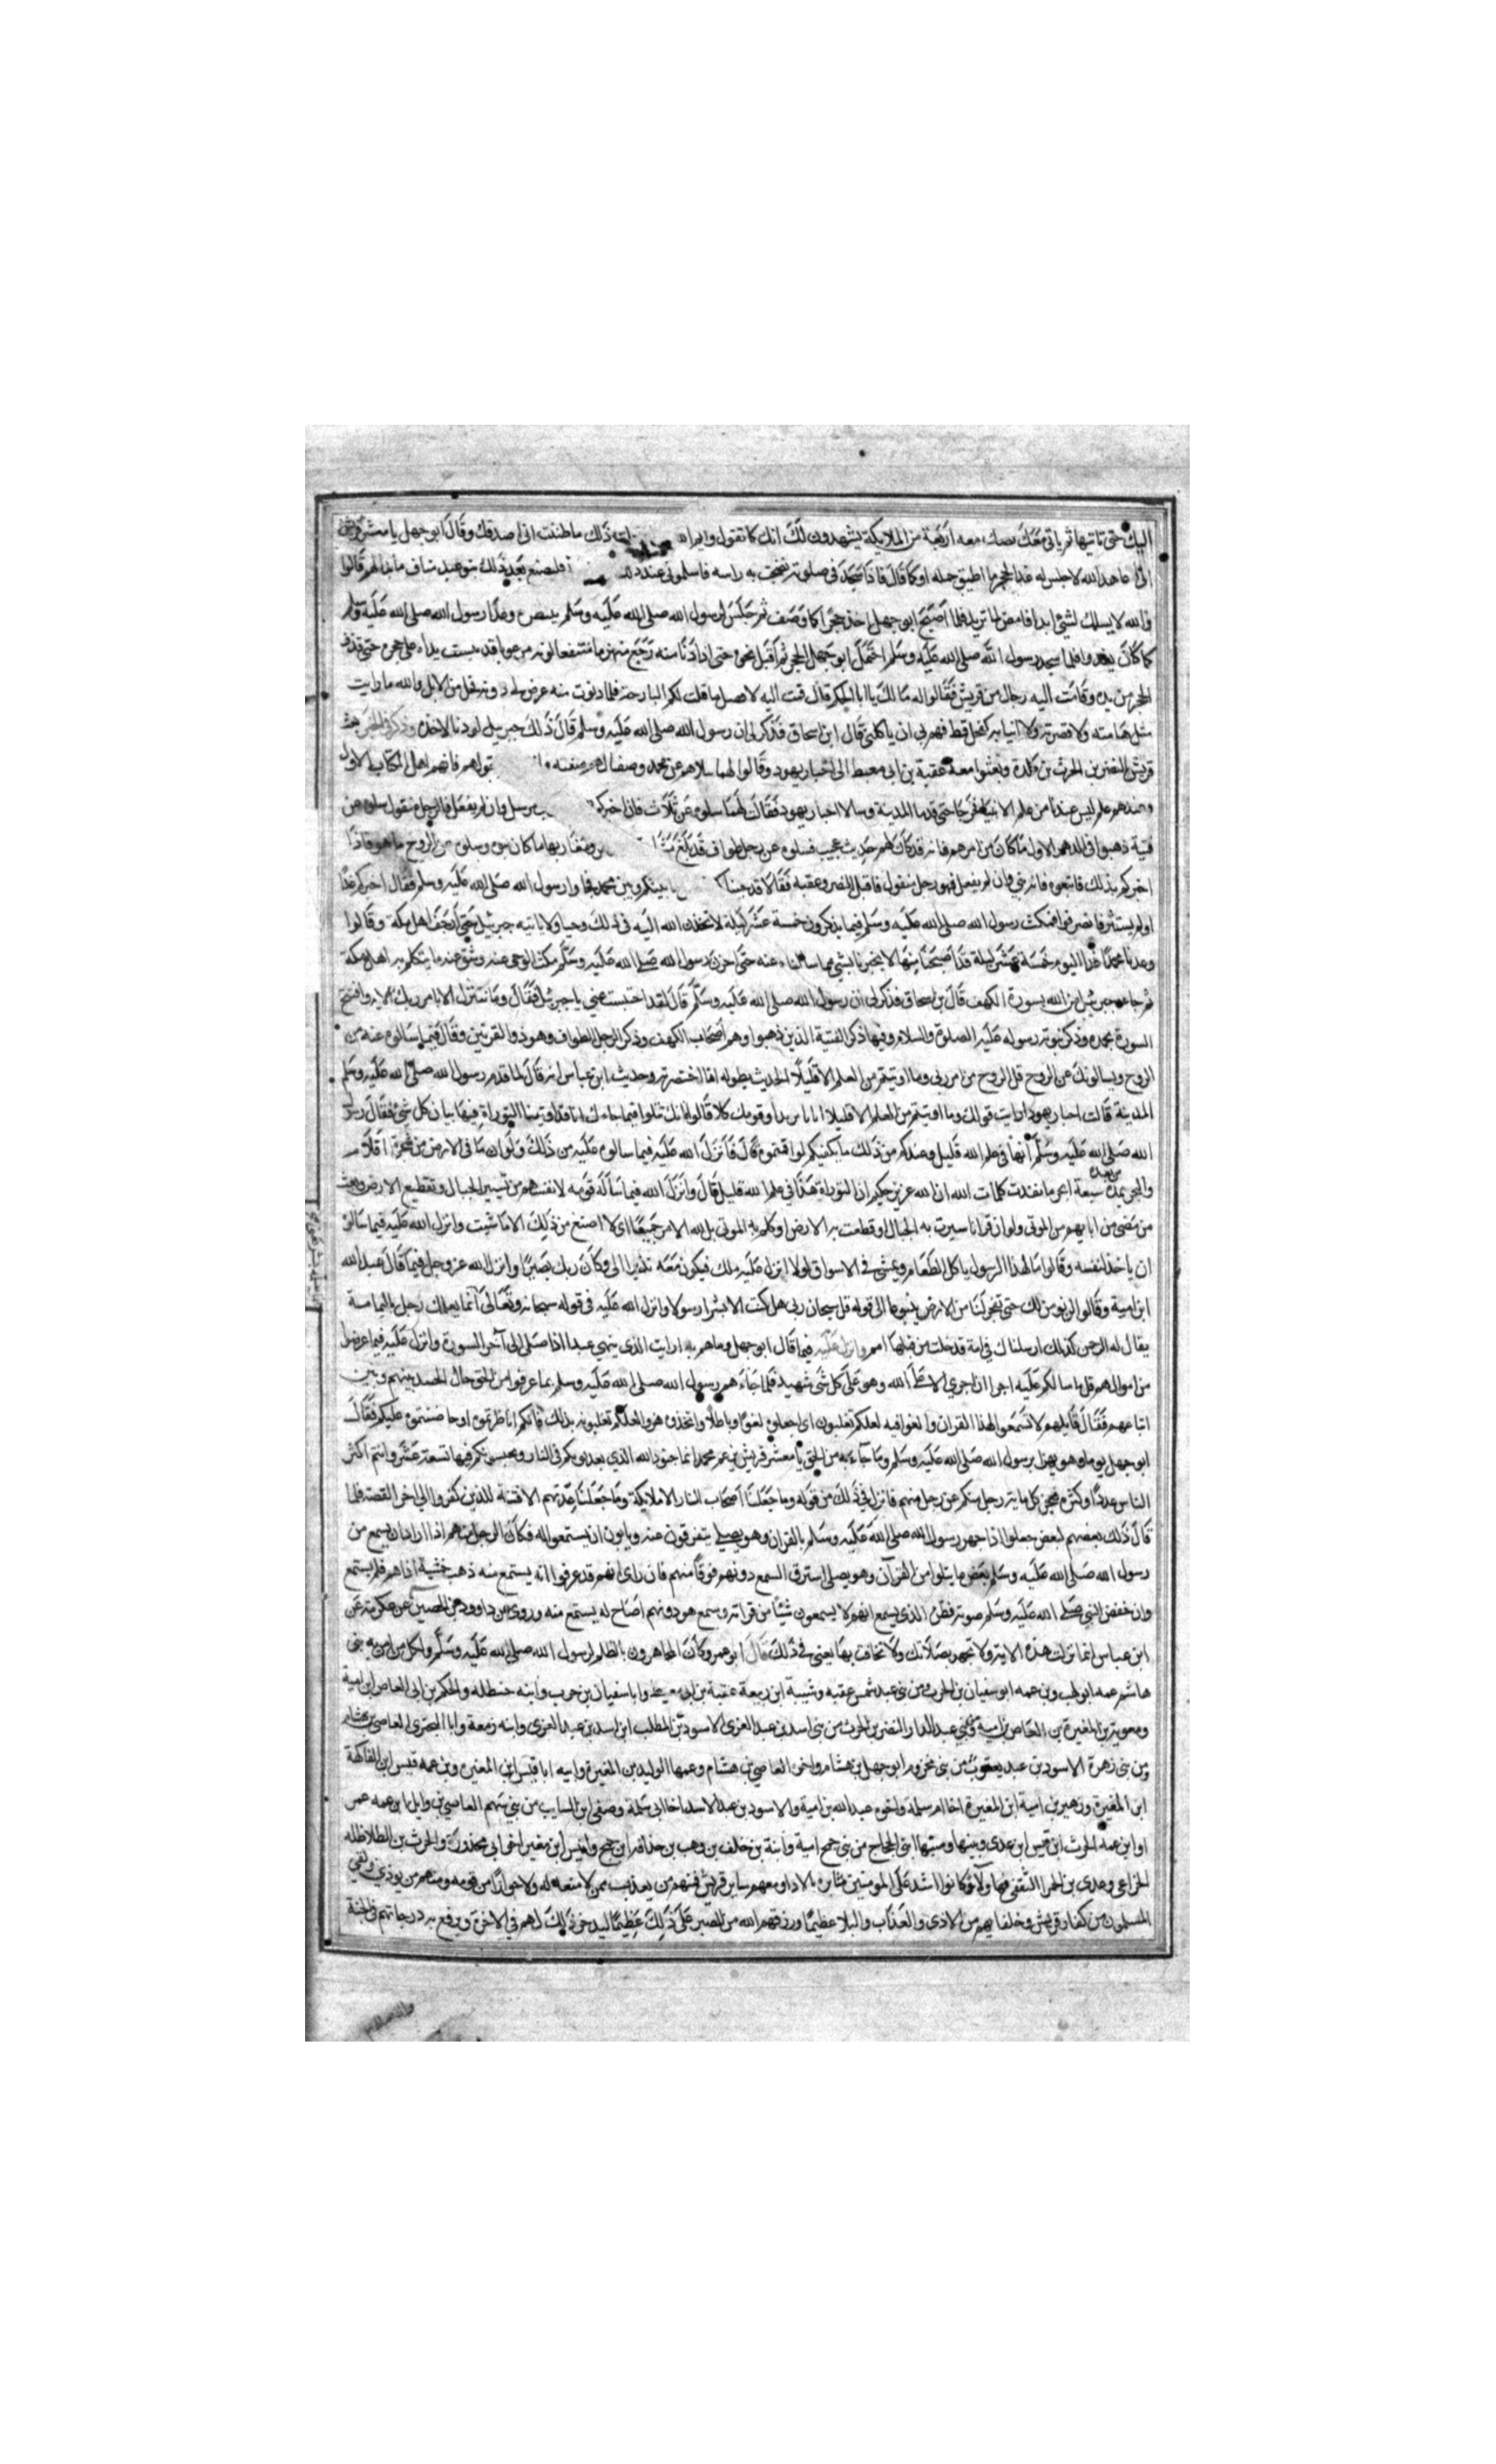 اليك حتى تاتيها ثم ياتى معك بصك معه اربعة من الملايكة يشهدون لك انك كما تقول وايم الله ذلك ما ظننت انى اصدقك وقال ابو جهل يا معشر قريش
انى اعاهد الله لاجلس له غدا بحجر ما اطيق حمله او كما قال فاذا سجد فى صلوته رضخت به راسه فاسلمونى عند ذلك فليصنع بعد ذلك بنو عبد مناف ما بدا لهم قالوا
والله لا نسلمك لشئ ابدا فامض لما تريد فلما اصبح ابو جهل اخذ حجرا كما وصف ثم جلس لرسول الله صلى الله عليه وسلم وغدا رسول الله صلى الله عليه وسلم
كما كان يغدوا فلما سجد رسول الله صلى الله عليه وسلم احتمل ابو جهل الحجر ثم اقبل نحوه حتى اذا دنا منه رجع منهزما منتقعا لونه مرعوبا قد يبست يداه على حجره حتى قذف
الحجر من يده وقامت اليه رجال من قريش فقالوا له مالك يا ابا الحكم قال قمت اليه لافعل ما قلت لكم البارحة فلما دنوت منه عرض لى دونه فحل من الابل والله ما رايت
مثل هامته ولا قصرته ولا انيابه لفحل قط فهم بى ان ياكلنى قال ابن اسحاق فذكر لى ان رسول الله صلى الله عليه وسلم قال ذلك جبريل لو دنا لاخذه
قريش النضر بن الحرث بن كلدة وبعثوا معه عقبة بن ابى معيط الى احبار يهود وقالوا لهما سلاهم عن محمد وصفا لهم صفته فانهم اهل الكتاب الاول
وعندهم علم ليس عندنا من علم الانبياء فخرجا حتى قدما المدينة وسالا احبار يهود فقالت لهما سلوه عن ثلاث فان اخبركم مرسل وان لم يفعل فالرجل متقول سلوه عن
فتية ذهبوا فى الدهر الاول ما كان من امرهم فانه قد كان لهم حديث عجيب فسلوه عن رجل طواف قد بلغ ومغاربها ما كان نبوه وسلوه عن الروح ما هو فاذا
اخبركم بذلك فاتبعوه فانه نبى وان لم يفعل فهو رجل متقول فاقبل النضر وعقبة فقالا قد جئنا بينكم وبين محمد فجاوا رسول الله صلى الله عليه وسلم فقال اخبركم غدا
ولم يستثن فانصرفوا فمكث رسول الله صلى الله عليه وسلم فيما يذكرون خمسة عشر ليلة لا يحدث الله اليه فى ذلك وحيا ولا ياتيه جبريل حتى ارجف اهل مكة وقالوا
وعدنا محمد غدا اليوم خمسة عشر ليلة قد اصبحنا منها لا يخبرنا بشئ مما سالناه عنه حتى احزن رسول الله صلى الله عليه وسلم مكث الوحى عنه وشق عنه ما يتكلم به اهل مكة
ثم جاءه جبريل من الله بسورة الكهف قال بن اسحاق فذكر لى ان رسول الله صلى الله عليه وسلم قال لقد احتبست عنى يا جبريل فقال وما نتنزل الا بامر ربك الاية وافتتح
السورة بحمده وذكر نبوته رسوله عليه الصلوة والسلام وفيها ذكر الفتية الذين ذهبوا وهم اصحاب الكهف وذكر الرجل الطواف وهو ذو القرنين وقال فيما سالوه عنه من
الروح ويسالونك عن الروح قل الروح من امر ربى وما اوتيتم من العلم الا قليلا الحديث بطوله انما اختصرته وحديث ابن عباس انه قال لما قدم رسول الله صلى الله عليه وسلم
المدينة قالت احبار يهود ارايت قولك وما اوتيتم من العلم الا قليلا ايانا تريد او قومك كلا قالوا فانك تتلوا فيما جاءك انا قد اوتينا التوراة فيها بيان كل شئ فقال رسول
الله صلى الله عليه وسلم انها فى علم الله قليل وعندكم من ذلك ما يكفيكم لو اقمتموه قال فانزل الله عليه فيما سالوه عليه من ذلك ولو ان ما فى الارض من شجرة اقلام
والبحر يمده من بعده سبعة ابحر ما نفدت كلمات الله ان الله عزيز حكيم ان التوراة هذا فى علم الله قليل قال وانزل الله فيما ساله قومه لانفسهم من تسيير الجبال وتقطيع الارض وبعث
من مضى من ابايهم من الموتى ولو ان قرانا سيرت به الجبال او قطعت به الارض او كلم به الموتى بل لله الامر جميعا اى لا اصنع من ذلك الا ما شيت وانزل الله عليه فيما سالوه
ان ياخذ لنفسه وقالوا مال هذا الرسول ياكل الطعام ويمشى فى الاسواق لولا انزل عليه ملك فيكون معه نذيرا الى وكان ربك بصيرا وانزل الله عز وجل فيما قال عبد الله
ابن امية وقالوا لن نومن لك حتى تفجر لنا من الارض ينبوعا الى قوله قل سبحان ربى هل كنت الا بشرا رسولا وانزل الله عليه فى قوله سبحانه وتعالى انما يعلمك رجل باليمامة
يقال له الرحمن كذلك ارسلناك فى امة قد خلت من قبلها امم وانزل عليه فيما قال ابو جهل وما هم به ارايت الذى ينهى عبدا اذا صلى الى آخر السورة وانزل عليه فيما عرضوا
من اموالهم قل ما سالتكم عليه اجرا ان اجرى الا على الله وهو على كل شئ شهيد فلما جاءهم رسول الله صلى الله عليه وسلم بما عرفوا من الحق حال الحسد بينهم وبين
اتباعهم فقال قايلهم لا تسمعوا لهذا القران والغوا فيه لعلكم تغلبون اى اجعلوه لغوا وباطلا واتخذوه هزوا لعلكم تغلبونه بذلك فانكم ان ناظرتموه او خاصمتموه عليكم فقال
ابو جهل يوما وهو يهزا برسول الله صلى الله عليه وسلم وما جاء به من الحق يا معشر قريش يزعم محمد انما جنود الله الذى يعذبونكم فى النار ويحبسونكم فيها تسعة عشر وانتم اكثر
الناس عددا وكثرة فيعجز كل ماية رجل منكم عن رجل منهم فانزل فى ذلك من قوله وما جعلنا اصحاب النار الا ملايكة وما جعلنا عدتهم الا فتنة للذين كفروا الى اخر القصة فلما
قال ذلك بعضهم لبعض جعلوا اذا جهر رسول الله صلى الله عليه وسلم بالقران وهو يصلى يتفرقون عنه ويابون ان يستمعوا له فكان الرجل منهم اذا اراد ان يسمع من
رسول الله صلى الله عليه وسلم بعض ما يتلوا من القرآن وهو يصلى استرق السمع دونهم فرقا منهم فان راى انهم قد عرفوا انه يستمع منه ذهب خشية اذاهم فلم يستمع
وان خفض النبى صلى الله عليه وسلم صوته فظن الذى يسمع انهم لا يسمعون شيئا من قراته وسمع هو دونهم اصاخ له يستمع منه وروى عن داوود بن الحصين عن عكرمة عن
ابن عباس انما نزلت هذه الاية ولا تجهر بصلاتك ولا تخافت بها يعنى فى ذلك قال ابو عمر وكان المجاهرون بالظلم لرسول الله صلى الله عليه وسلم ولكل من امن به بنى
هاشم عمه ابو لهب وبن عمه ابو سفيان بن الحرث ومن بنى عبد شمس عقبه وشيبة ابن ربيعة عقبة بن ابى معيط وابا سفيان بن حرب وابنه حنظله والحكم بن ابى العاص ابن امية
ومعوية بن المغيرة بن العاص بن امية ومن بنى عبد الدار النضر بن الحرث من بنى اسد بن عبد العزى الاسود بن المطلب ابن اسد بن عبد العزى وابنه زمعة وابا البخترى العاصى بن هشام
ومن بنى زهرة الاسود بن عبد يغوث من بنى مخزوم ابو جهل بن هشام واخوه العاصى بن هشام وعمهما الوليد بن المغيرة وابنه ابا قيس ابن المغيرة وبن عمه قيس ابن الفاكهة
ابن المغيرة وزهير بن امية ابن المغيرة اخا ام سلمة واخوه عبد الله بن امية والاسود بن عبد الاسد اخا ابى سلمة وصيفى ابن السايب من بنى سهم العاصى بن وايل وابن عمه عمرو
او ابن عمه الحرث ابن قيس ابن عدى ونبيها ومنبها ابنى الحجاج من بنى جمح امية وابنه بن خلف بن وهب بن حذافة ابن جمح وانيس ابن مغير اخو ابى محذورة والحرث بن الطلاطله
الخزاعى وعدى بن الحمرا الثقفى فهاولاء كانوا اشد على المومنين مثابرة بالاذاء ومعهم ساير قريش فمنهم من يعذب من لا منعه له ولا جوار من قومه ومنهم من يوذى ولقى
المسلمون من كفار قريش وخلفايهم من الاذى والعذاب والبلا عظيما ورزقهم الله من الصبر على ذلك عظيما ليدخر ذلك لهم فى الاخرة ويرفع به درجاتهم فى الجنة